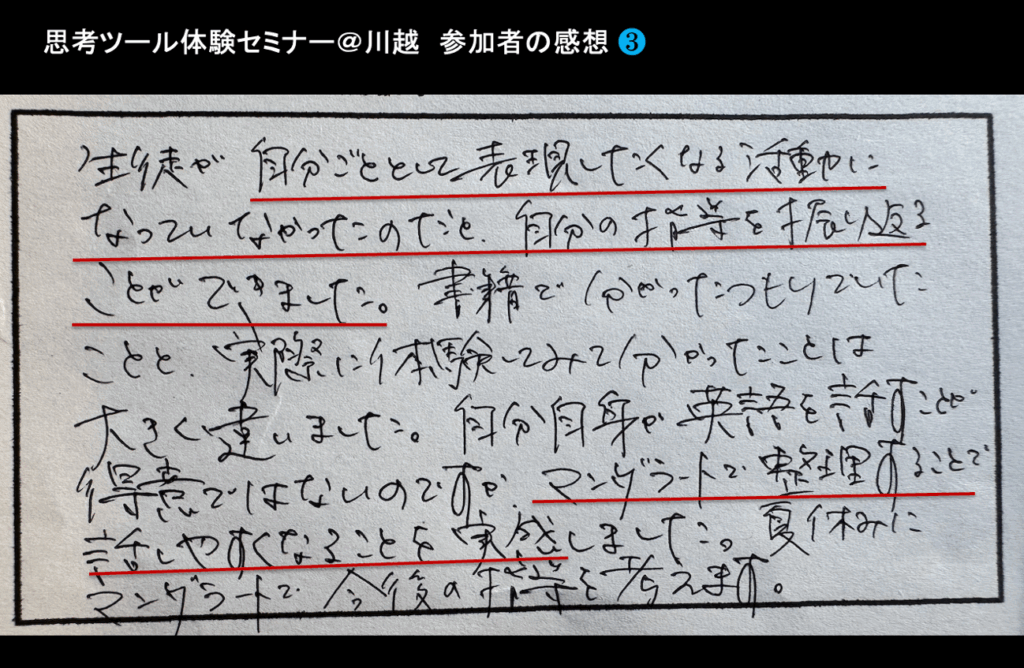 思考ツール体験セミナー＠川越　参加者の感想 ❸
生徒が 自分ごととして表現したくなる活動に
なっていなかったのだと、自分の指導を振り返る
ことができました。書籍で分かったつもりでいた
ことと、実際に体験してみて分かったことは
大きく違いました。自分自身が英語を話すことが
得意ではないのですが、マンダラートで整理することで
話しやすくなることを実感しました。夏休みに
マンダラートで今後の指導を考えます。